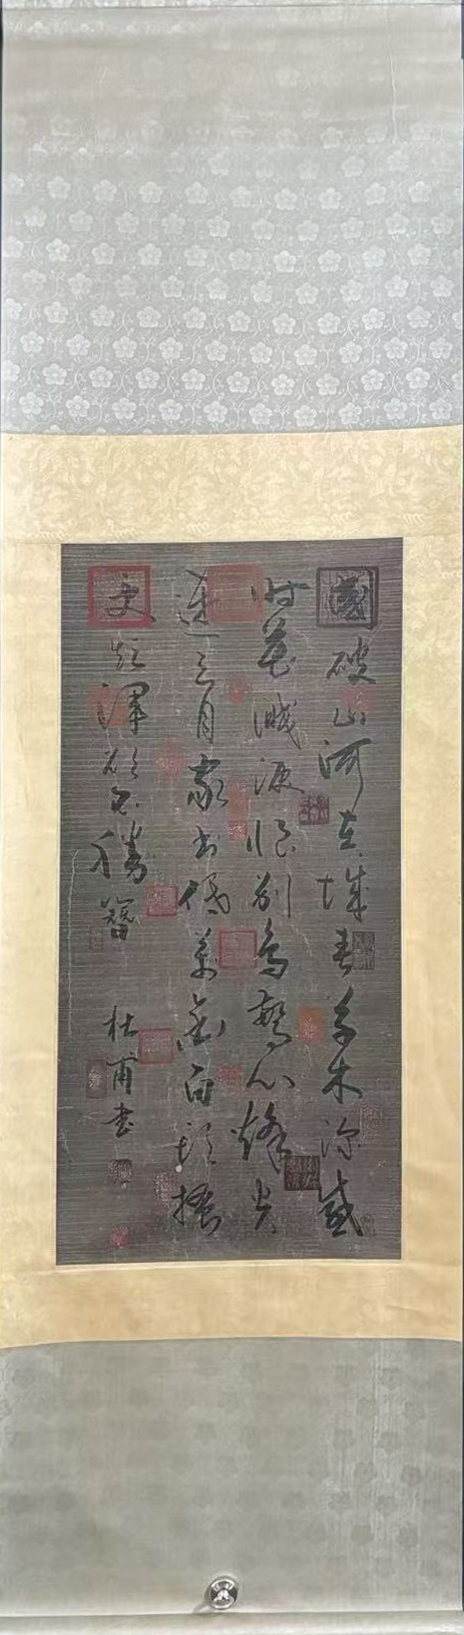 國破山河在城春草木深感
時花濺淚恨別鳥驚心烽火
連三月家書抵萬金白頭搔
更短渾欲不勝簪
杜甫書